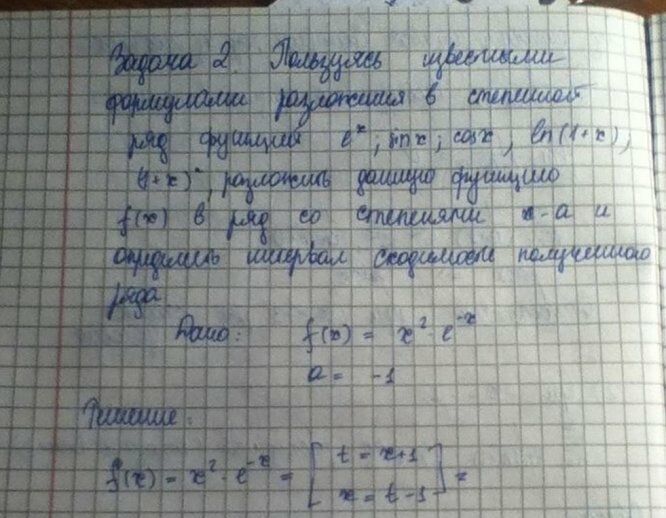 Задача 2. Пользуясь известными
формулами разложения в степенной
ряд функций e^x, sin x; cos x, ln(1+x),
(1+x)^n, разложить данную функцию
f(x) в ряд со степенями x-a и
определить интервал сходимости полученного
ряда.
Дано: f(x) = x²·e^{-x}
a = -1
Решение:
f(x) = x²·e^{-x} = [t = x+1
x = t-1] =